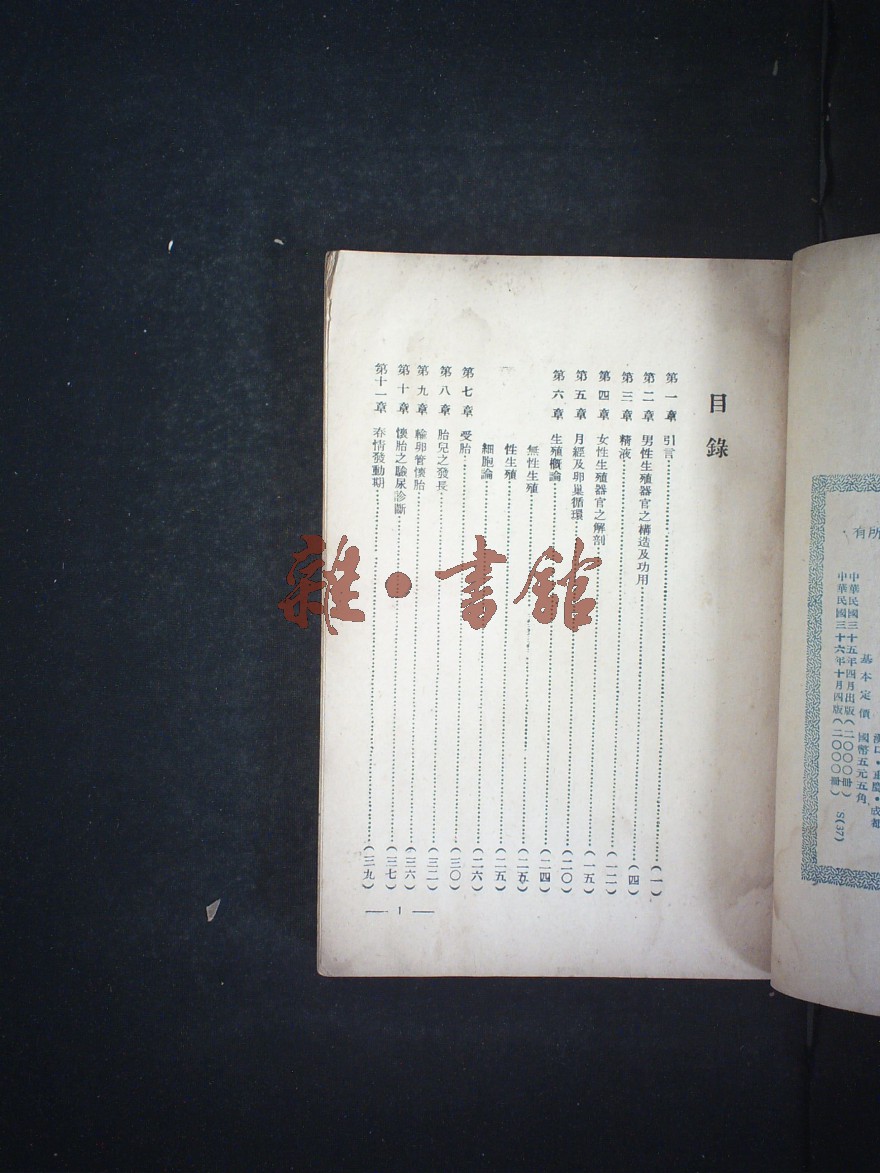 有所
漢口·重慶·成都
基本定價 國幣五元五角
中華民國三十五年四月出版(二〇〇〇冊)
中華民國三十六年十月四版(二〇〇〇冊) S(37)
目錄
第一章 引言(一)
第二章 男性生殖器官之構造及功用(四)
第三章 精液(一二)
第四章 女性生殖器官之解剖(一五)
第五章 月經及卵巢循環(二〇)
第六章 生殖概論(二四)
無性生殖(二五)
性生殖(二五)
細胞論(二六)
第七章 受胎(三〇)
第八章 胎兒之發長(三二)
第九章 輸卵管懷胎(三六)
第十章 懷胎之驗尿診斷(三七)
第十一章 春情發動期(三九)
— 1 —
雜·書館